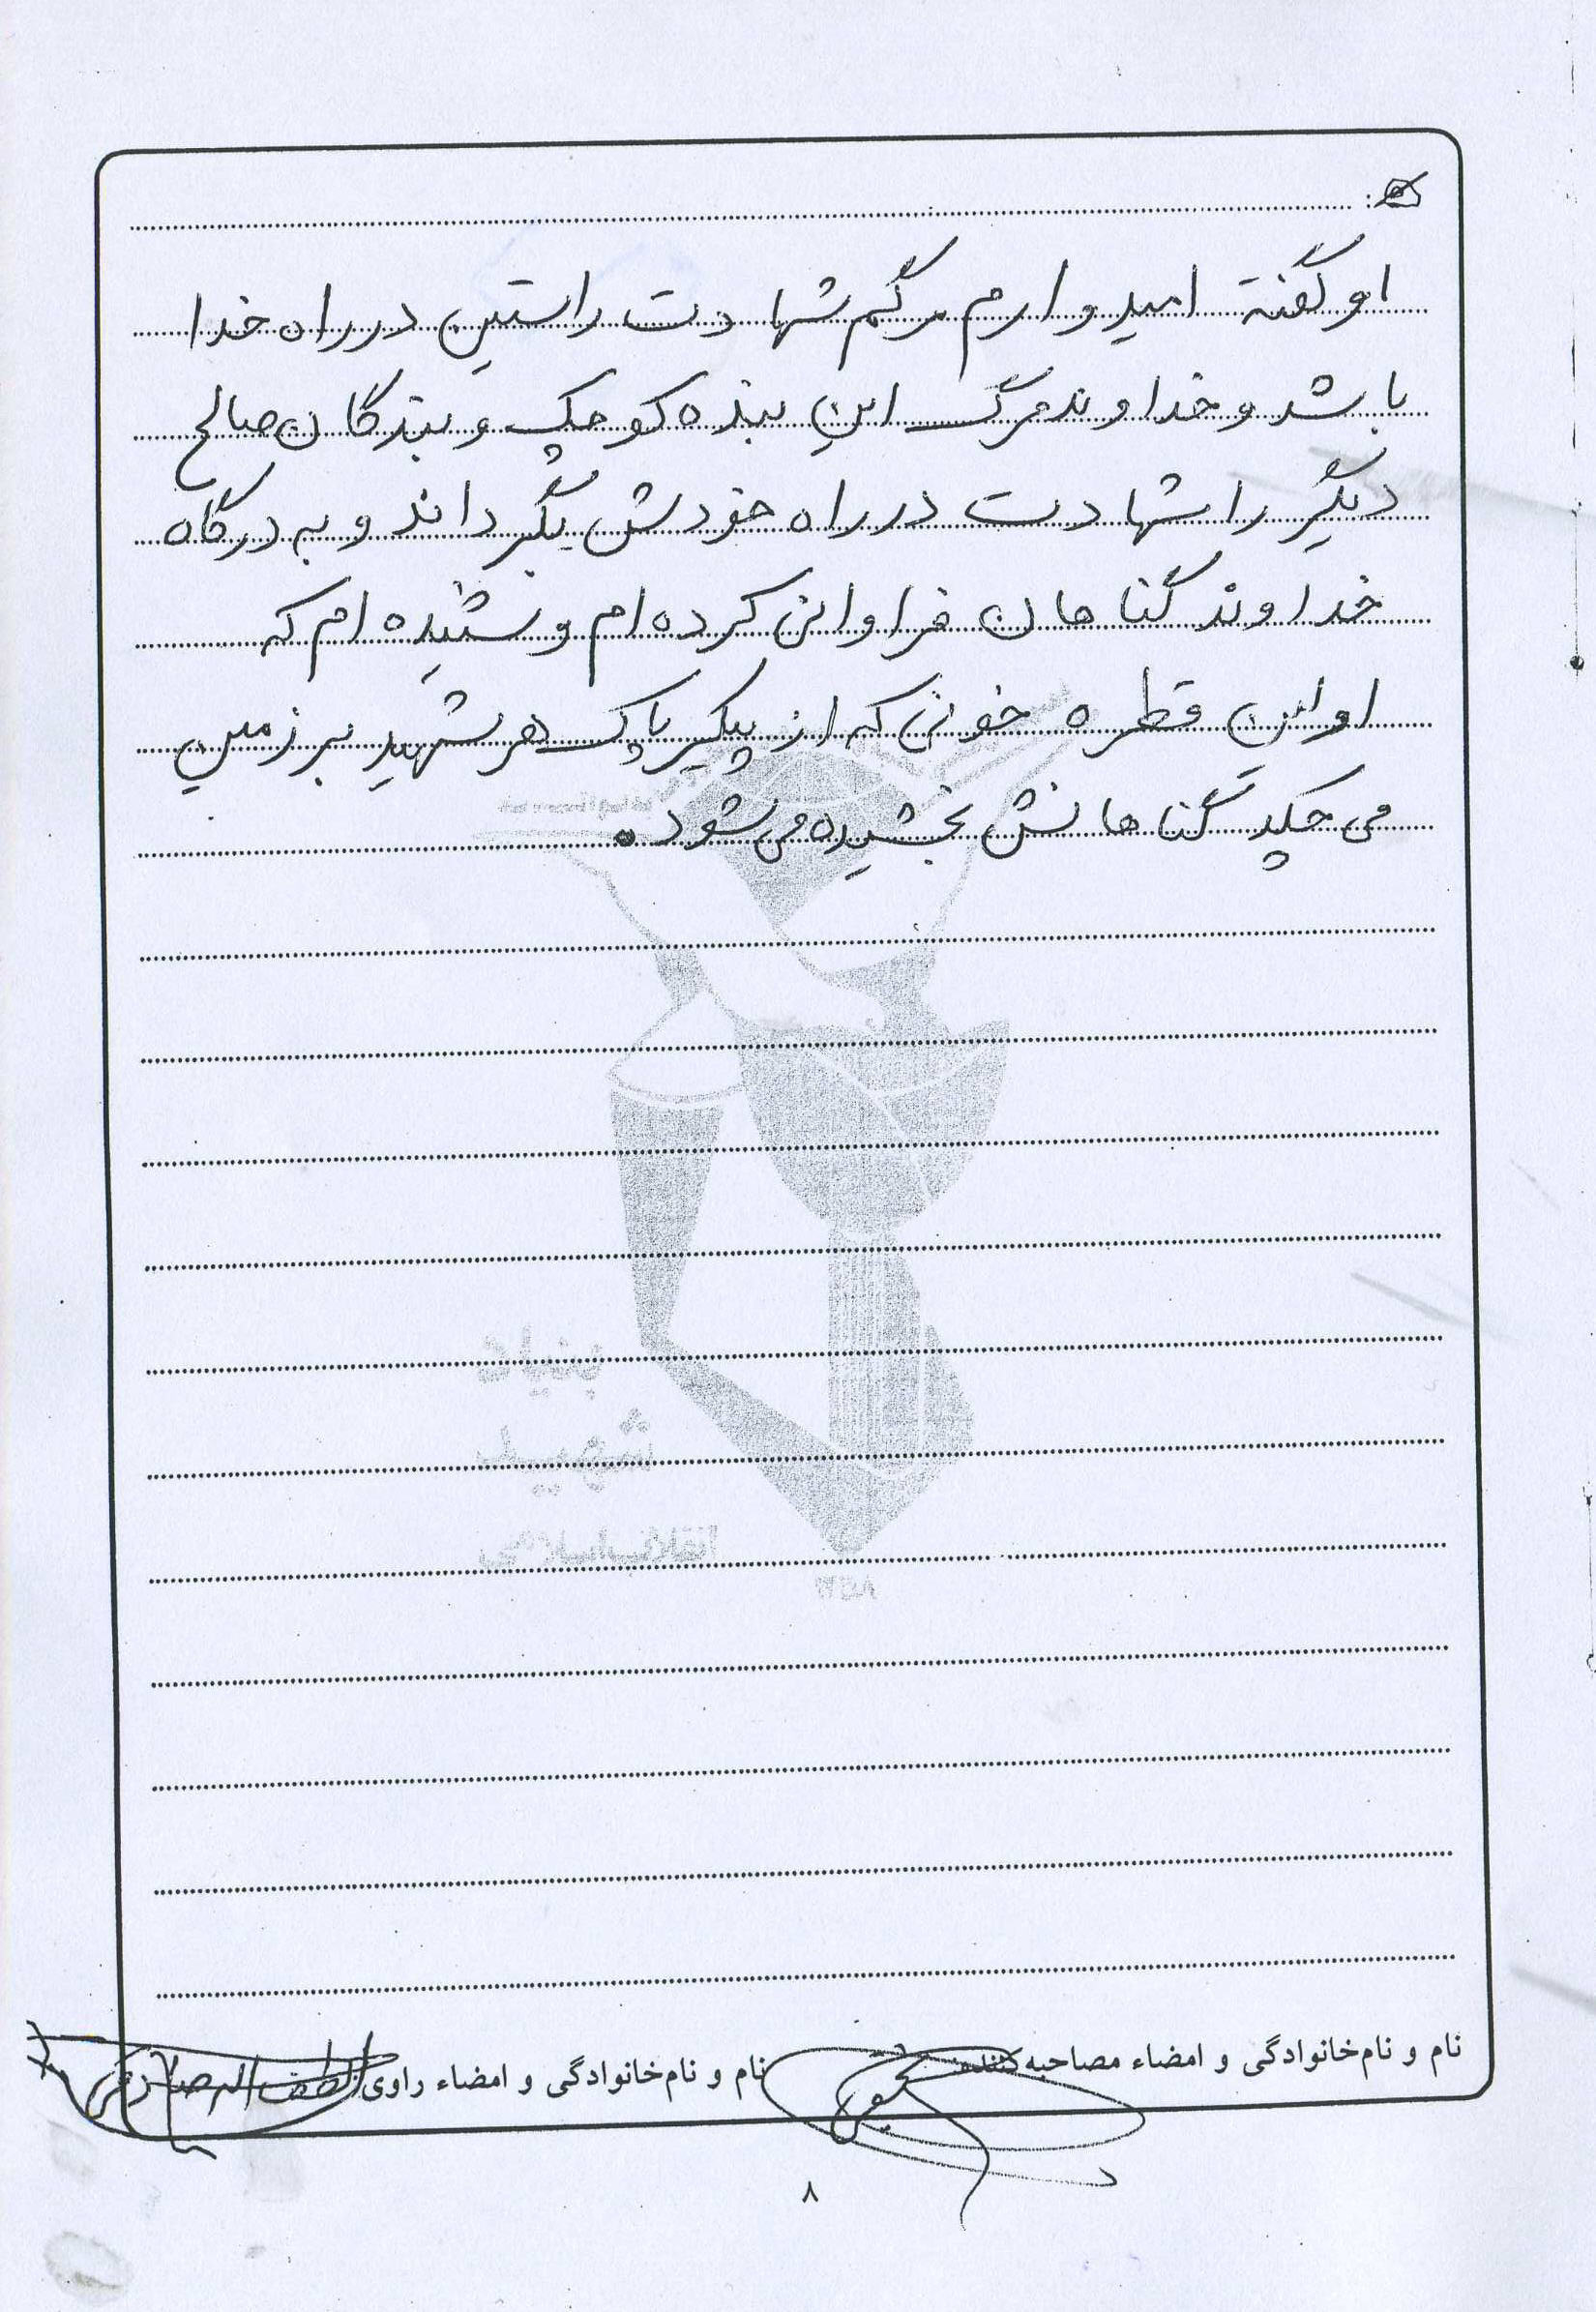 او گفته امیدوارم مرگم شهادت راستین در راه خدا
باشد و خداوند مرگ این بنده کوچک و بندگان صالح
دیگر را شهادت در راه خودش بگرداند و به درگاه
خداوند گناهان فراوانی کرده ام و شنیده ام که
اولین قطره خونی که از پیکر پاک هر شهید بر زمین
می چکد گناهانش بخشیده می شود.
بنیاد
شهید
انقلاب اسلامی
نام و نام‌خانوادگی و امضاء مصاحبه‌کننده:
نام و نام‌خانوادگی و امضاء راوی: لطف اله صادقی
۸